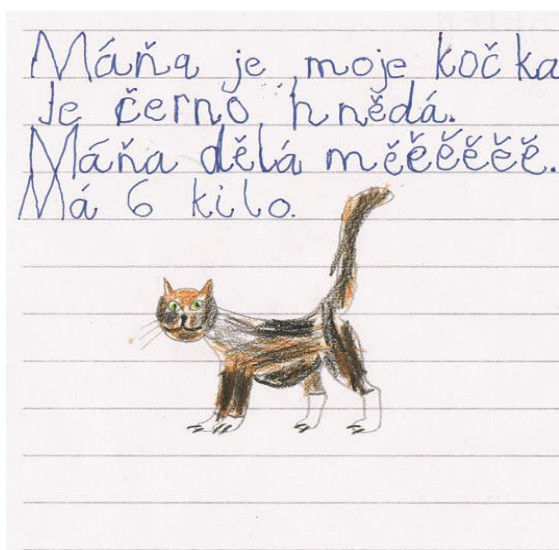 Máňa je moje kočka
Je černo hnědá.
Máňa dělá měěěěěě.
Má 6 kilo.